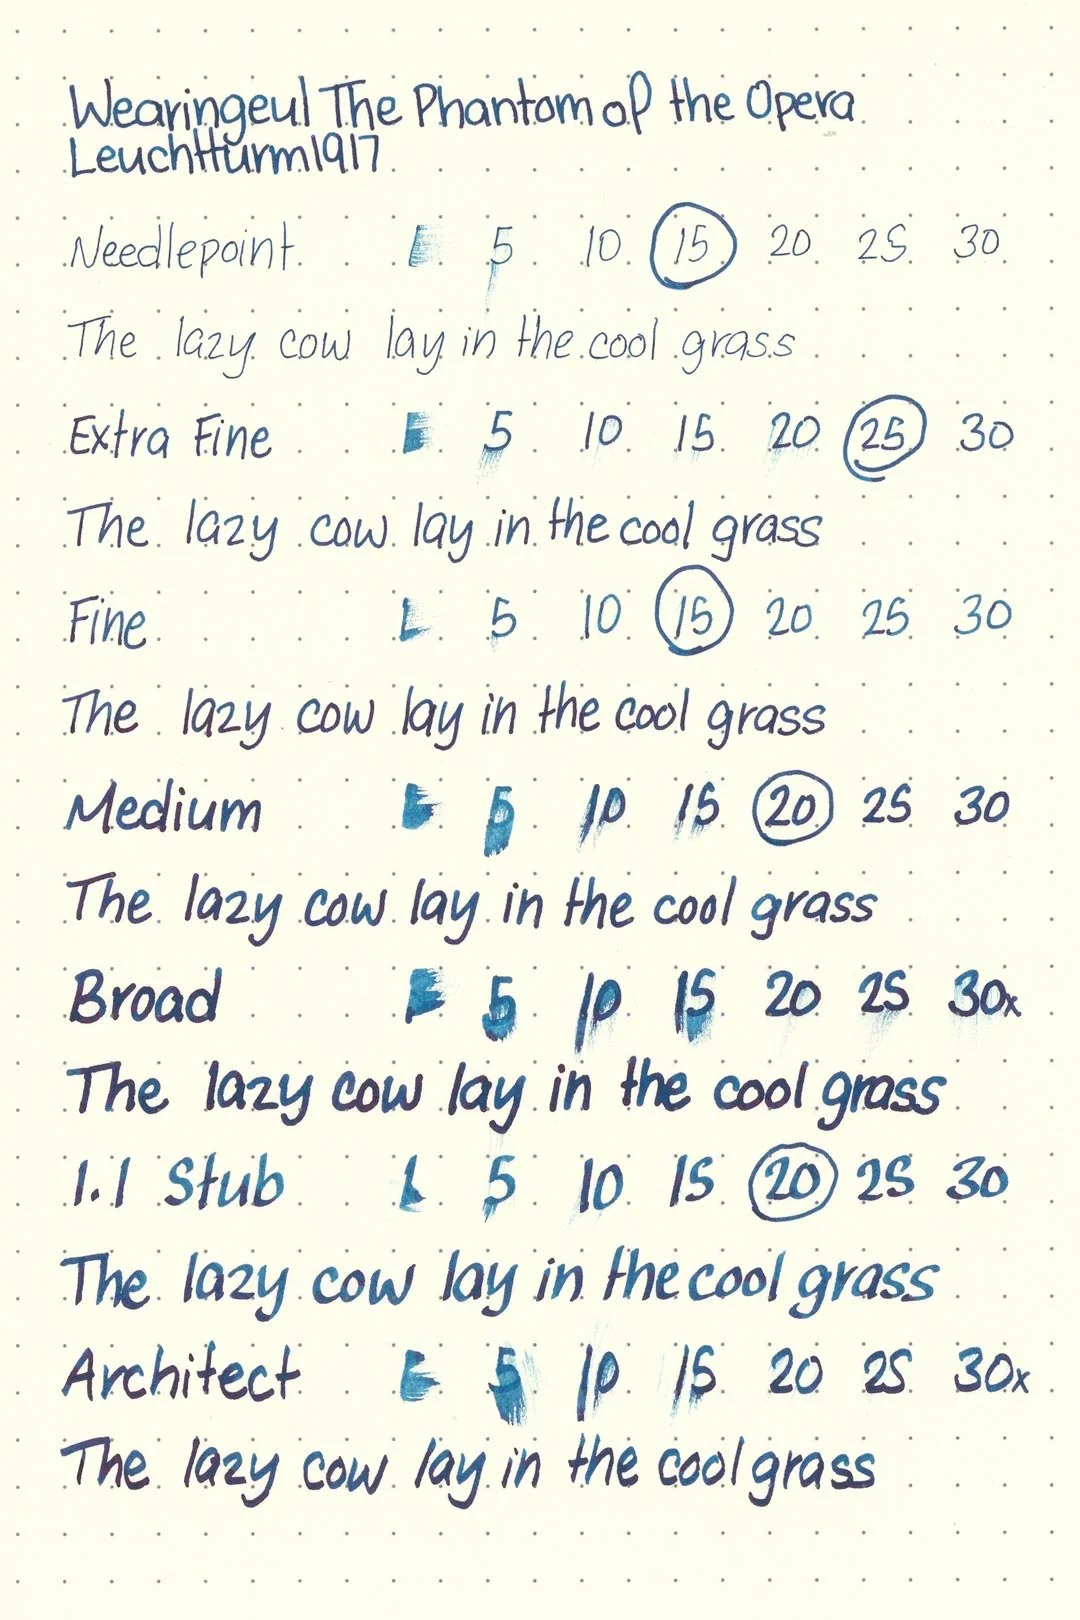 Wearingeul The Phantom of the Opera
Leuchtturm1917
Needlepoint 5 10 15 20 25 30
The lazy cow lay in the cool grass
Extra Fine 5 10 15 20 25 30
The lazy cow lay in the cool grass
Fine 5 10 15 20 25 30
The lazy cow lay in the cool grass
Medium 5 10 15 20 25 30
The lazy cow lay in the cool grass
Broad 5 10 15 20 25 30x
The lazy cow lay in the cool grass
1.1 Stub 5 10 15 20 25 30
The lazy cow lay in the cool grass
Architect 5 10 15 20 25 30x
The lazy cow lay in the cool grass